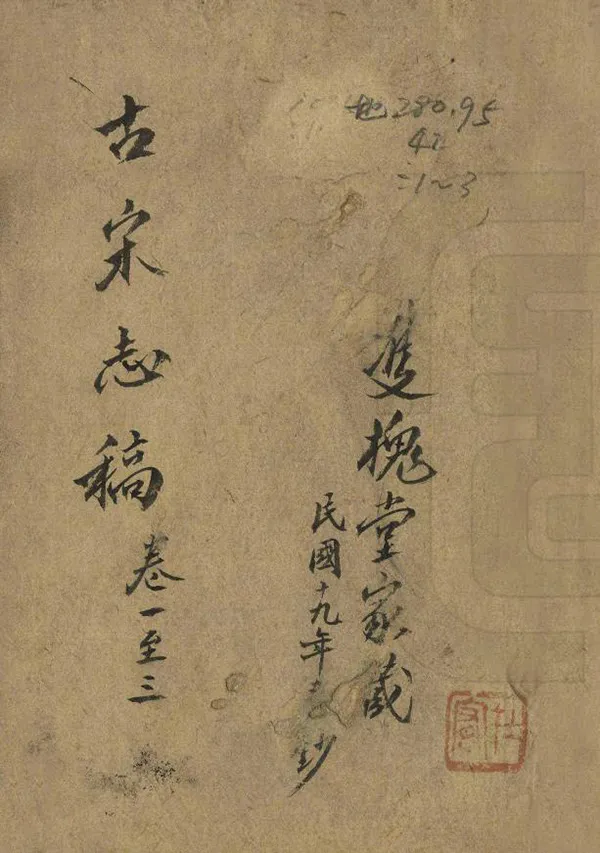 地280.95
42
:1~3
雙槐堂家藏
民國十九年 鈔
古宋志稿
卷一至三